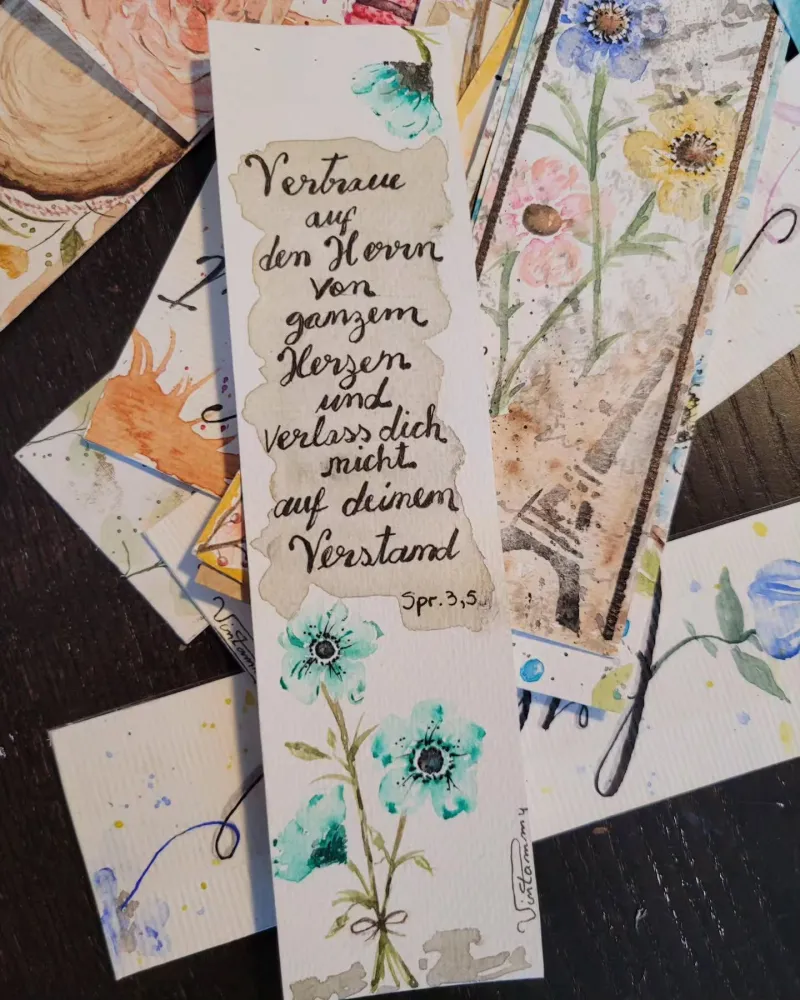 Vertraue
auf
den Herrn
von
ganzem
Herzen
und
verlass dich
nicht
auf deinem
Verstand
Spr. 3,5
Vintammy
Vintammy